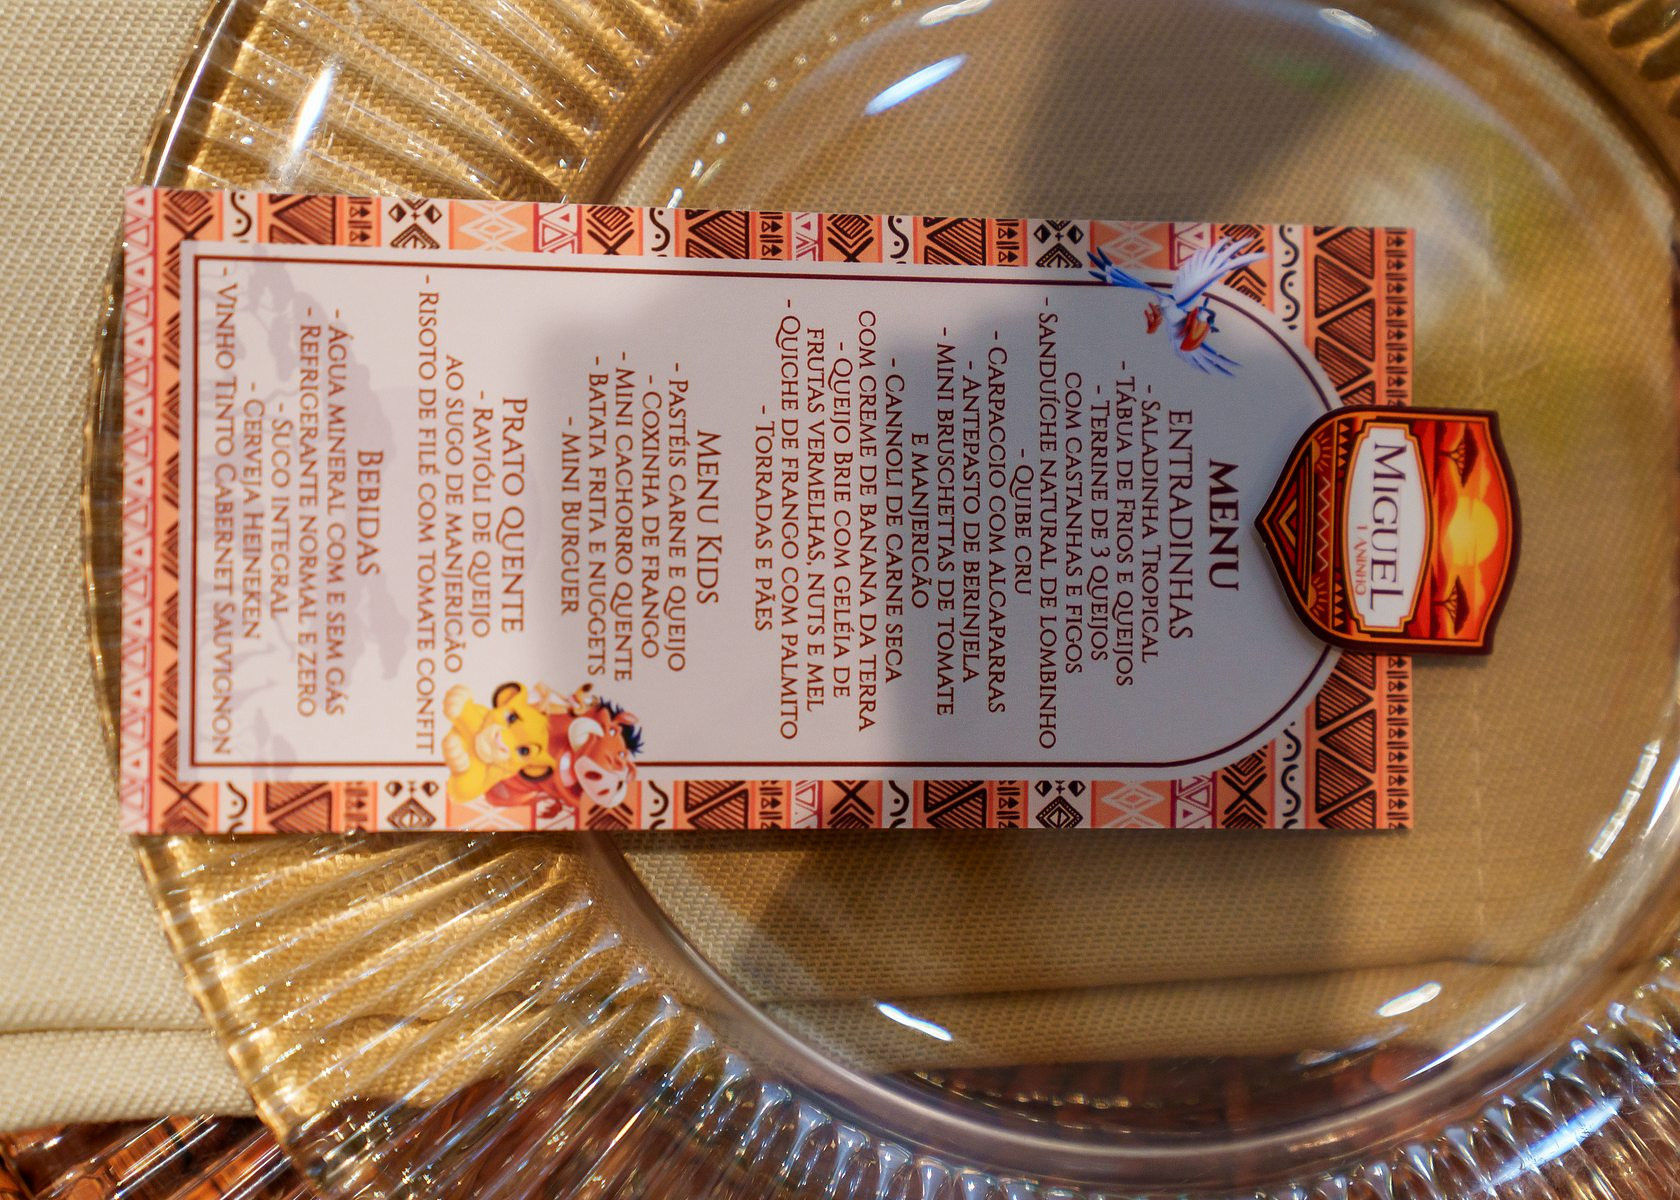 MIGUEL
1 ANINHO
MENU
ENTRADINHAS
- SALADINHA TROPICAL
- TÁBUA DE FRIOS E QUEIJOS
- TERRINE DE 3 QUEIJOS
COM CASTANHAS E FIGOS
- SANDUÍCHE NATURAL DE LOMBINHO
- QUIBE CRU
- CARPACCIO COM ALCAPARRAS
- ANTEPASTO DE BERINJELA
- MINI BRUSCHETTAS DE TOMATE
E MANJERICÃO
- CANNOLI DE CARNE SECA
COM CREME DE BANANA DA TERRA
- QUEIJO BRIE COM GELÉIA DE
FRUTAS VERMELHAS, NUTS E MEL
- QUICHE DE FRANGO COM PALMITO
- TORRADAS E PÃES
MENU KIDS
- PASTÉIS CARNE E QUEIJO
- COXINHA DE FRANGO
- MINI CACHORRO QUENTE
- BATATA FRITA E NUGGETS
- MINI BURGUER
PRATO QUENTE
- RAVIÓLI DE QUEIJO
AO SUGO DE MANJERICÃO
- RISOTO DE FILÉ COM TOMATE CONFIT
BEBIDAS
- ÁGUA MINERAL COM E SEM GÁS
- REFRIGERANTE NORMAL E ZERO
- SUCO INTEGRAL
- CERVEJA HEINEKEN
- VINHO TINTO CABERNET SAUVIGNON